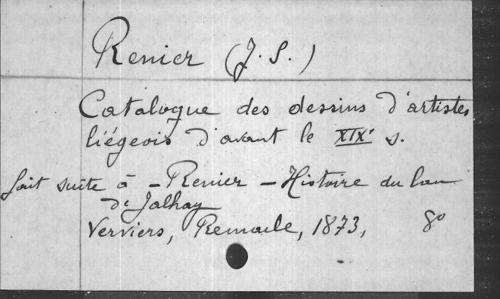 Renier (J. S.)
Catalogue des dessins d'artistes
liégeois d'avant le XIXe s.
fait suite à - Renier - Histoire du ban
de Jalhay
Verviers, Remacle, 1873, 8o